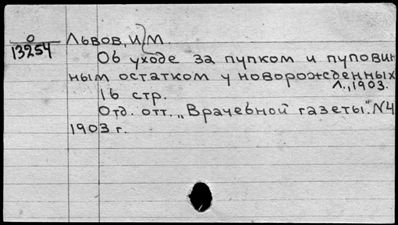 О
13254
Львов, И. М.
Об уходе за пупком и пуповин-
ным остатком у новорожденных
Л., 1903.
16 стр.
Отд. отт. „Врачебной газеты". №4
1903 г.